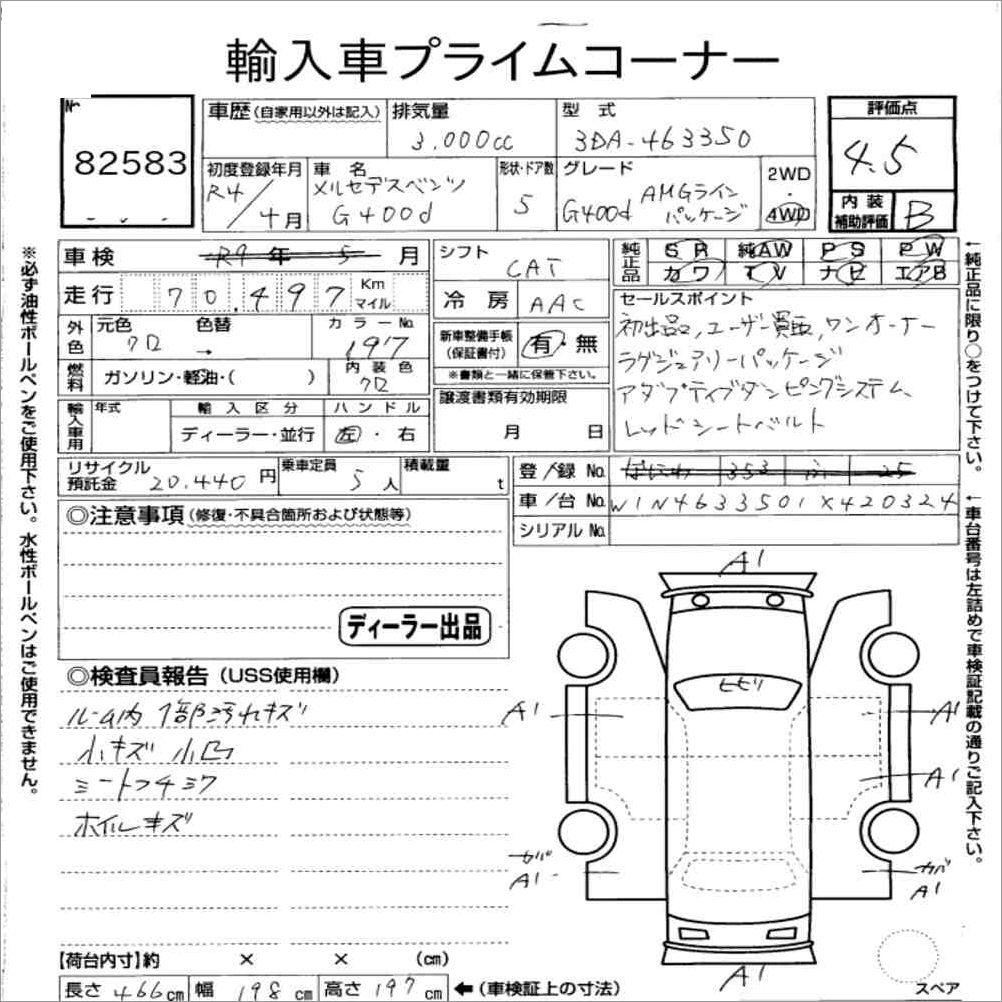 輸入車プライムコーナー
№
82583
車歴(自家用以外は記入)
排気量
3.000cc
型 式
3DA-463350
評価点
4.5
初度登録年月
R4/4月
車 名
メルセデスベンツ
G400d
形状・ドア数
5
グレード
G400d
AMGライン
パッケージ
2WD
・
4WD
内 装
補助評価
B
車検 R9年 5月
シフト
CAT
純正品
SR 純AW PS PW
カワ TV ナビ エアB
走行 70.497 Km
マイル
冷 房
AAC
セールスポイント
初出品,ユーザー買取,ワンオーナー
ラグジュアリーパッケージ
アダプティブダンピングシステム、
レッドシートベルト
外色
元色 色替
クロ →
カラーNo.
197
新車整備手帳
(保証書付)
有・無
※書類と一緒に保管下さい。
燃料
ガソリン・軽油・( )
内 装 色
クロ
譲渡書類有効期限
月 日
輸入車用
年式
輸 入 区 分
ディーラー・並行
ハ ン ド ル
左・右
リサイクル
預託金
20.440円
乗車定員
5人
積載量
t
登/録 No. なにわ 353 ふ 25
車/台 No. W1N4633501X420324
シリアル No.
◎注意事項(修復・不具合箇所および状態等)
ディーラー出品
◎検査員報告(USS使用欄)
ルーム内 1部汚れキズ
小キズ 小凹
シートスチミワ
ホイルキズ
A1
ヒビリ
A1
A1
A1
カバ
A1
カバ
A1
A1
【荷台内寸】約 × × (cm)
長さ 466cm 幅 198cm 高さ 197cm ←(車検証上の寸法)
スペア
※必ず油性ボールペンをご使用下さい。水性ボールペンはご使用できません。
↑純正品に限り○をつけて下さい。
↑車台番号は左詰めで車検証記載の通りご記入下さい。